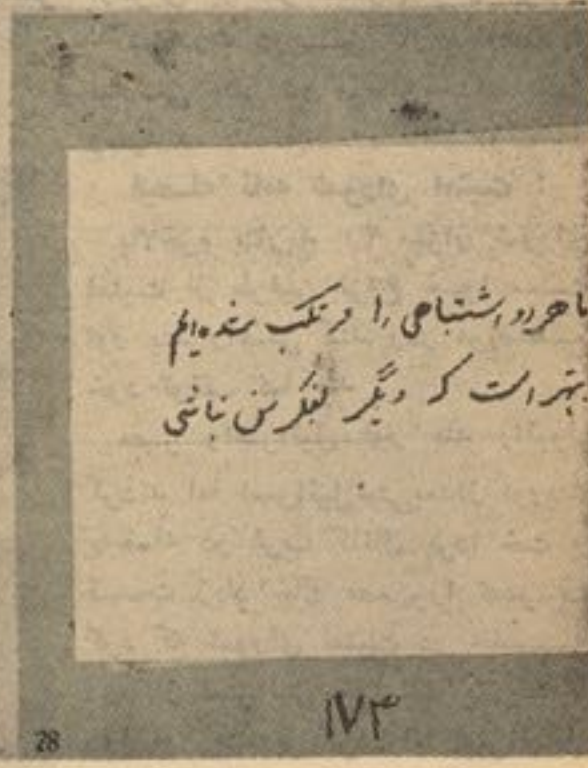 ما هر دو اشتباهی را مرتکب شده‌ایم
بهتر است که دیگر بفکر من نباشی
۱۷۳
28